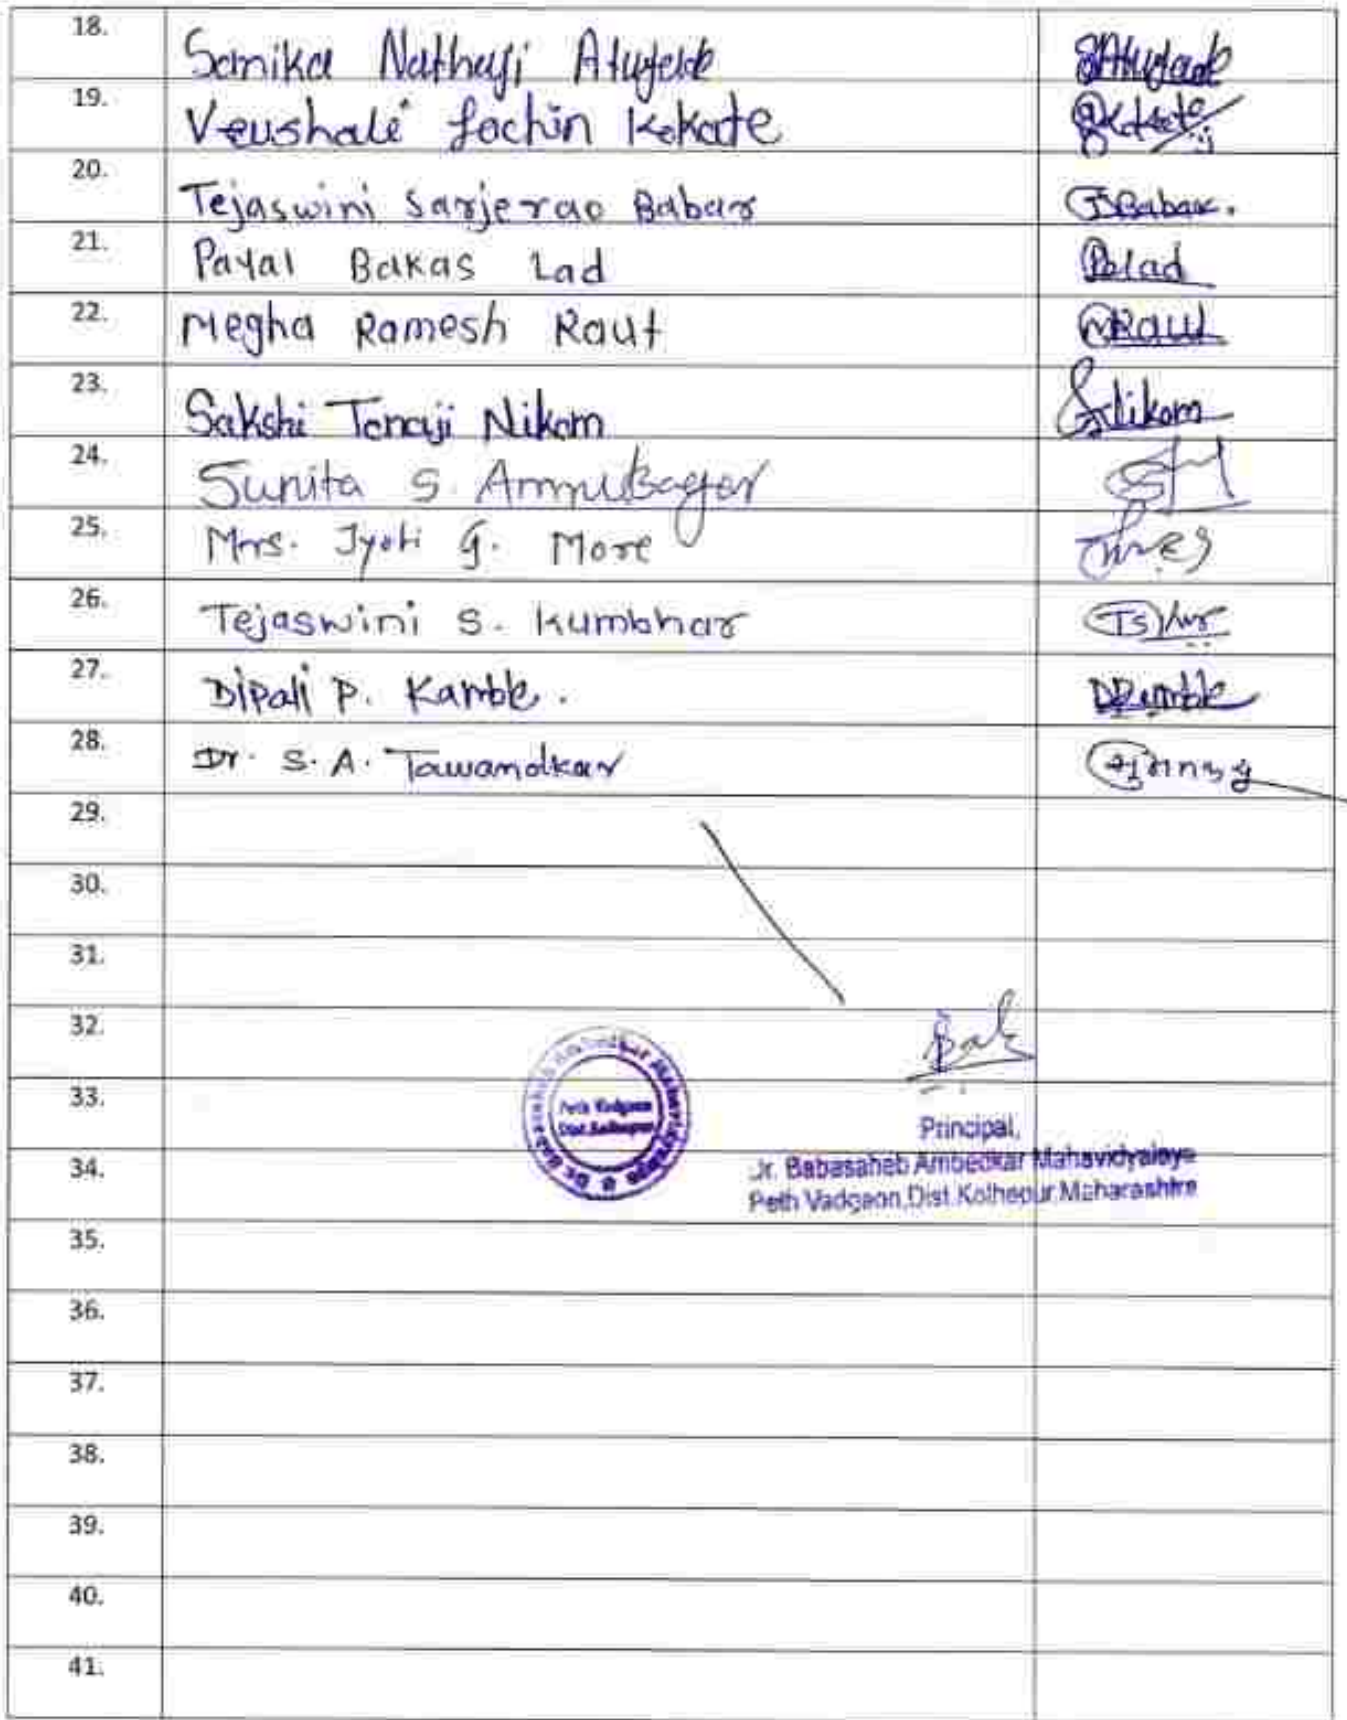 18. Samika Nathaji
19. Vaishali Sachin Kokate
20. Tejaswini Sarjerao Babar TSBabar.
21. Payal Bakas Lad Pblad
22. Megha Ramesh Raut MRaut
23. Sakshi Tanaji Nikam SNikam
24. Sunita S.
25. Mrs. Jyoti G. More
26. Tejaswini S. Kumbhar
27. Dipali P. Kamble.
28. Dr. S. A. Tawandkar
29.
30.
31.
32.
33. Peth Vadgaon
Dist. Kolhapur
Principal,
34. Dr. Babasaheb Ambedkar Mahavidyalaya
Peth Vadgaon, Dist. Kolhapur, Maharashtra
35.
36.
37.
38.
39.
40.
41.